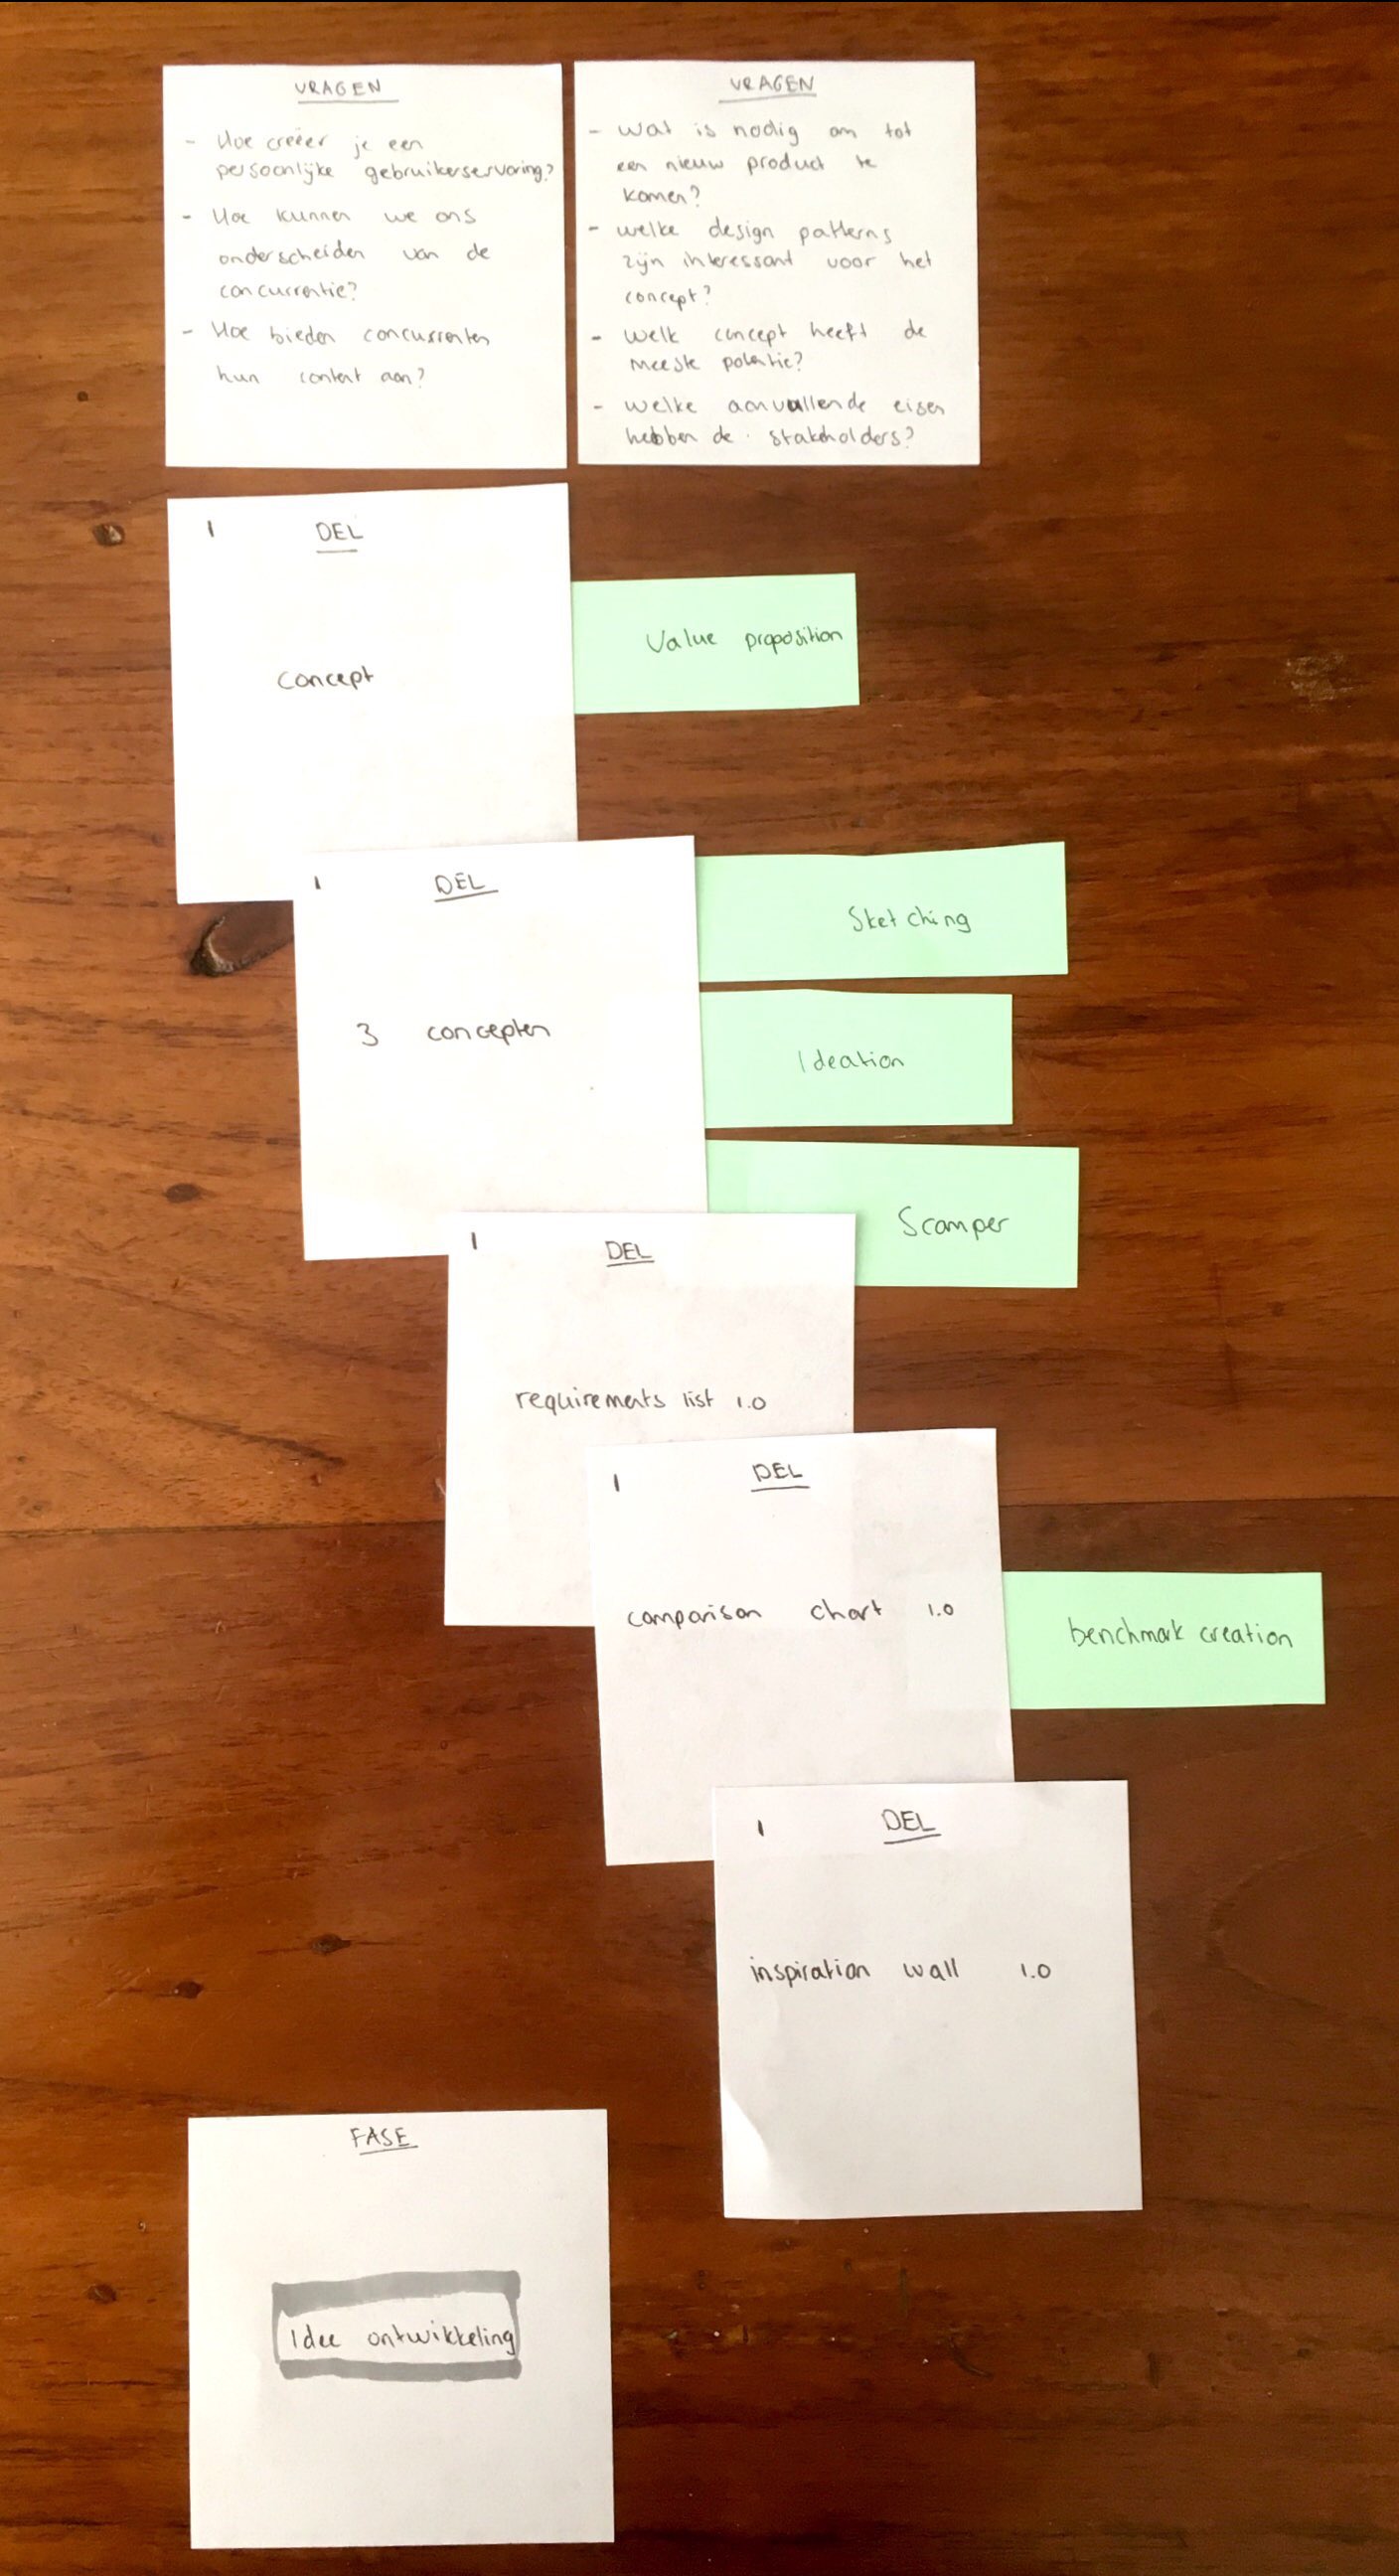 VRAGEN
- Hoe creëer je een
persoonlijke gebruikerservaring?
- Hoe kunnen we ons
onderscheiden van de
concurrentie?
- Hoe bieden concurrenten
hun content aan?
VRAGEN
- wat is nodig om tot
een nieuw product te
komen?
- welke design patterns
zijn interessant voor het
concept?
- welk concept heeft de
meeste potentie?
- welke aanvullende eisen
hebben de stakeholders?
1 DEL
concept
Value proposition
1 DEL
3 concepten
Sketching
Ideation
Scamper
1 DEL
requirements list 1.0
1 DEL
comparison chart 1.0
benchmark creation
1 DEL
inspiration wall 1.0
FASE
Idee ontwikkeling